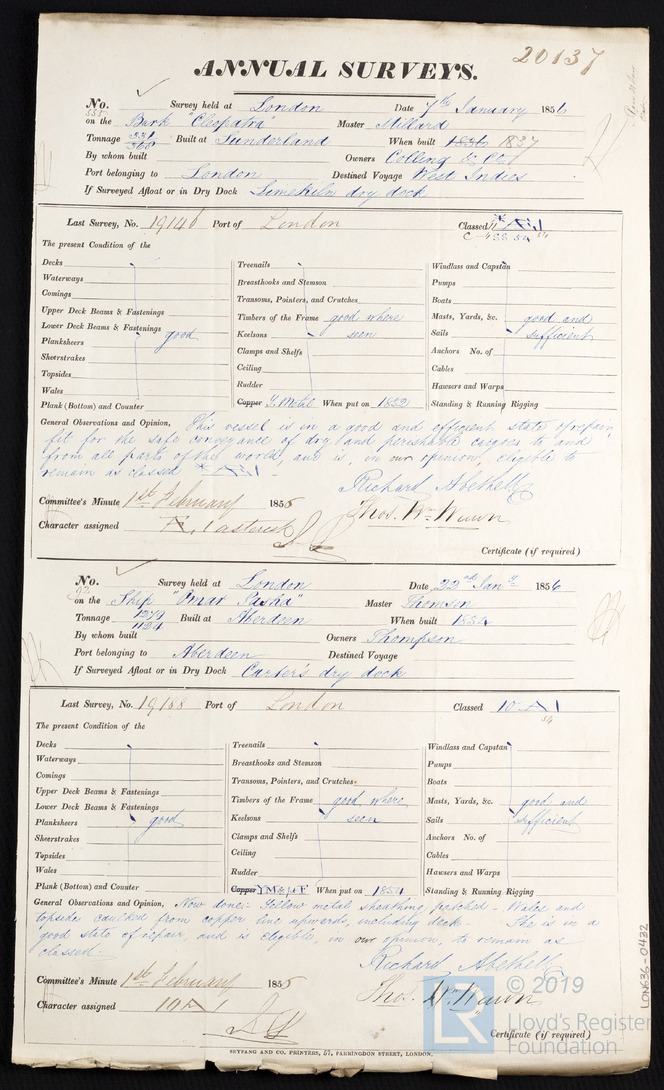 20137
ANNUAL SURVEYS.
No. Survey held at London Date 7th January 1856
on the Bark "Cleopatra" Master Millard
Tonnage 368 Built at Sunderland When built 1836 1837
By whom built Owners Colling & Co
Port belonging to London Destined Voyage West Indies
If Surveyed Afloat or in Dry Dock Limekiln dry dock
Last Survey, No. 19146 Port of London Classed * A1
The present Condition of the
Decks
Waterways
Comings
Upper Deck Beams & Fastenings
Lower Deck Beams & Fastenings
Planksheers good
Sheerstrakes
Topsides
Wales
Plank (Bottom) and Counter
Treenails
Breasthooks and Stemson
Transoms, Pointers, and Crutches
Timbers of the Frame good where
Keelsons seen
Clamps and Shelfs
Ceiling
Rudder
Copper Y. Metal When put on 1852
Windlass and Capstan
Pumps
Boats
Masts, Yards, &c. good and
Sails sufficient
Anchors No. of
Cables
Hawsers and Warps
Standing & Running Rigging
General Observations and Opinion, This vessel is in a good and efficient state of repair,
fit for the safe conveyance of dry and perishable cargoes to and
from all parts of the world, and is, in our opinion, eligible to
remain as classed * A1
Richard Abethell
Committee's Minute 1st February 1856
Thos. Wm. Wawn
Character assigned A, 1 asterisk
Certificate (if required)
No. Survey held at London Date 22nd Jany 1856
on the Ship "Omar Pasha" Master Thomson
Tonnage 1279 1124 Built at Aberdeen When built 1854
By whom built Owners Thompson
Port belonging to Aberdeen Destined Voyage
If Surveyed Afloat or in Dry Dock Carter's dry dock
Last Survey, No. 19188 Port of London Classed 10 A1 54
The present Condition of the
Decks
Waterways
Comings
Upper Deck Beams & Fastenings
Lower Deck Beams & Fastenings
Planksheers good
Sheerstrakes
Topsides
Wales
Plank (Bottom) and Counter
Treenails
Breasthooks and Stemson
Transoms, Pointers, and Crutches
Timbers of the Frame good where
Keelsons seen
Clamps and Shelfs
Ceiling
Rudder
Copper YM & uF When put on 1854
Windlass and Capstan
Pumps
Boats
Masts, Yards, &c. good and
Sails sufficient
Anchors No. of
Cables
Hawsers and Warps
Standing & Running Rigging
General Observations and Opinion, Now done:- Yellow metal sheathing patched - Wales and
topsides caulked from copper line upwards, including deck - She is in a
good state of repair, and is eligible, in our opinion, to remain as
classed.-
Richard Abethell
Committee's Minute 1st February 1856
Thos. Wm. Wawn
Character assigned 10 A 1
Certificate (if required)
SEYFANG AND CO. PRINTERS, 57, FARRINGDON STREET, LONDON.
LON636-0432
© 2019
LR
Lloyd's Register
Foundation